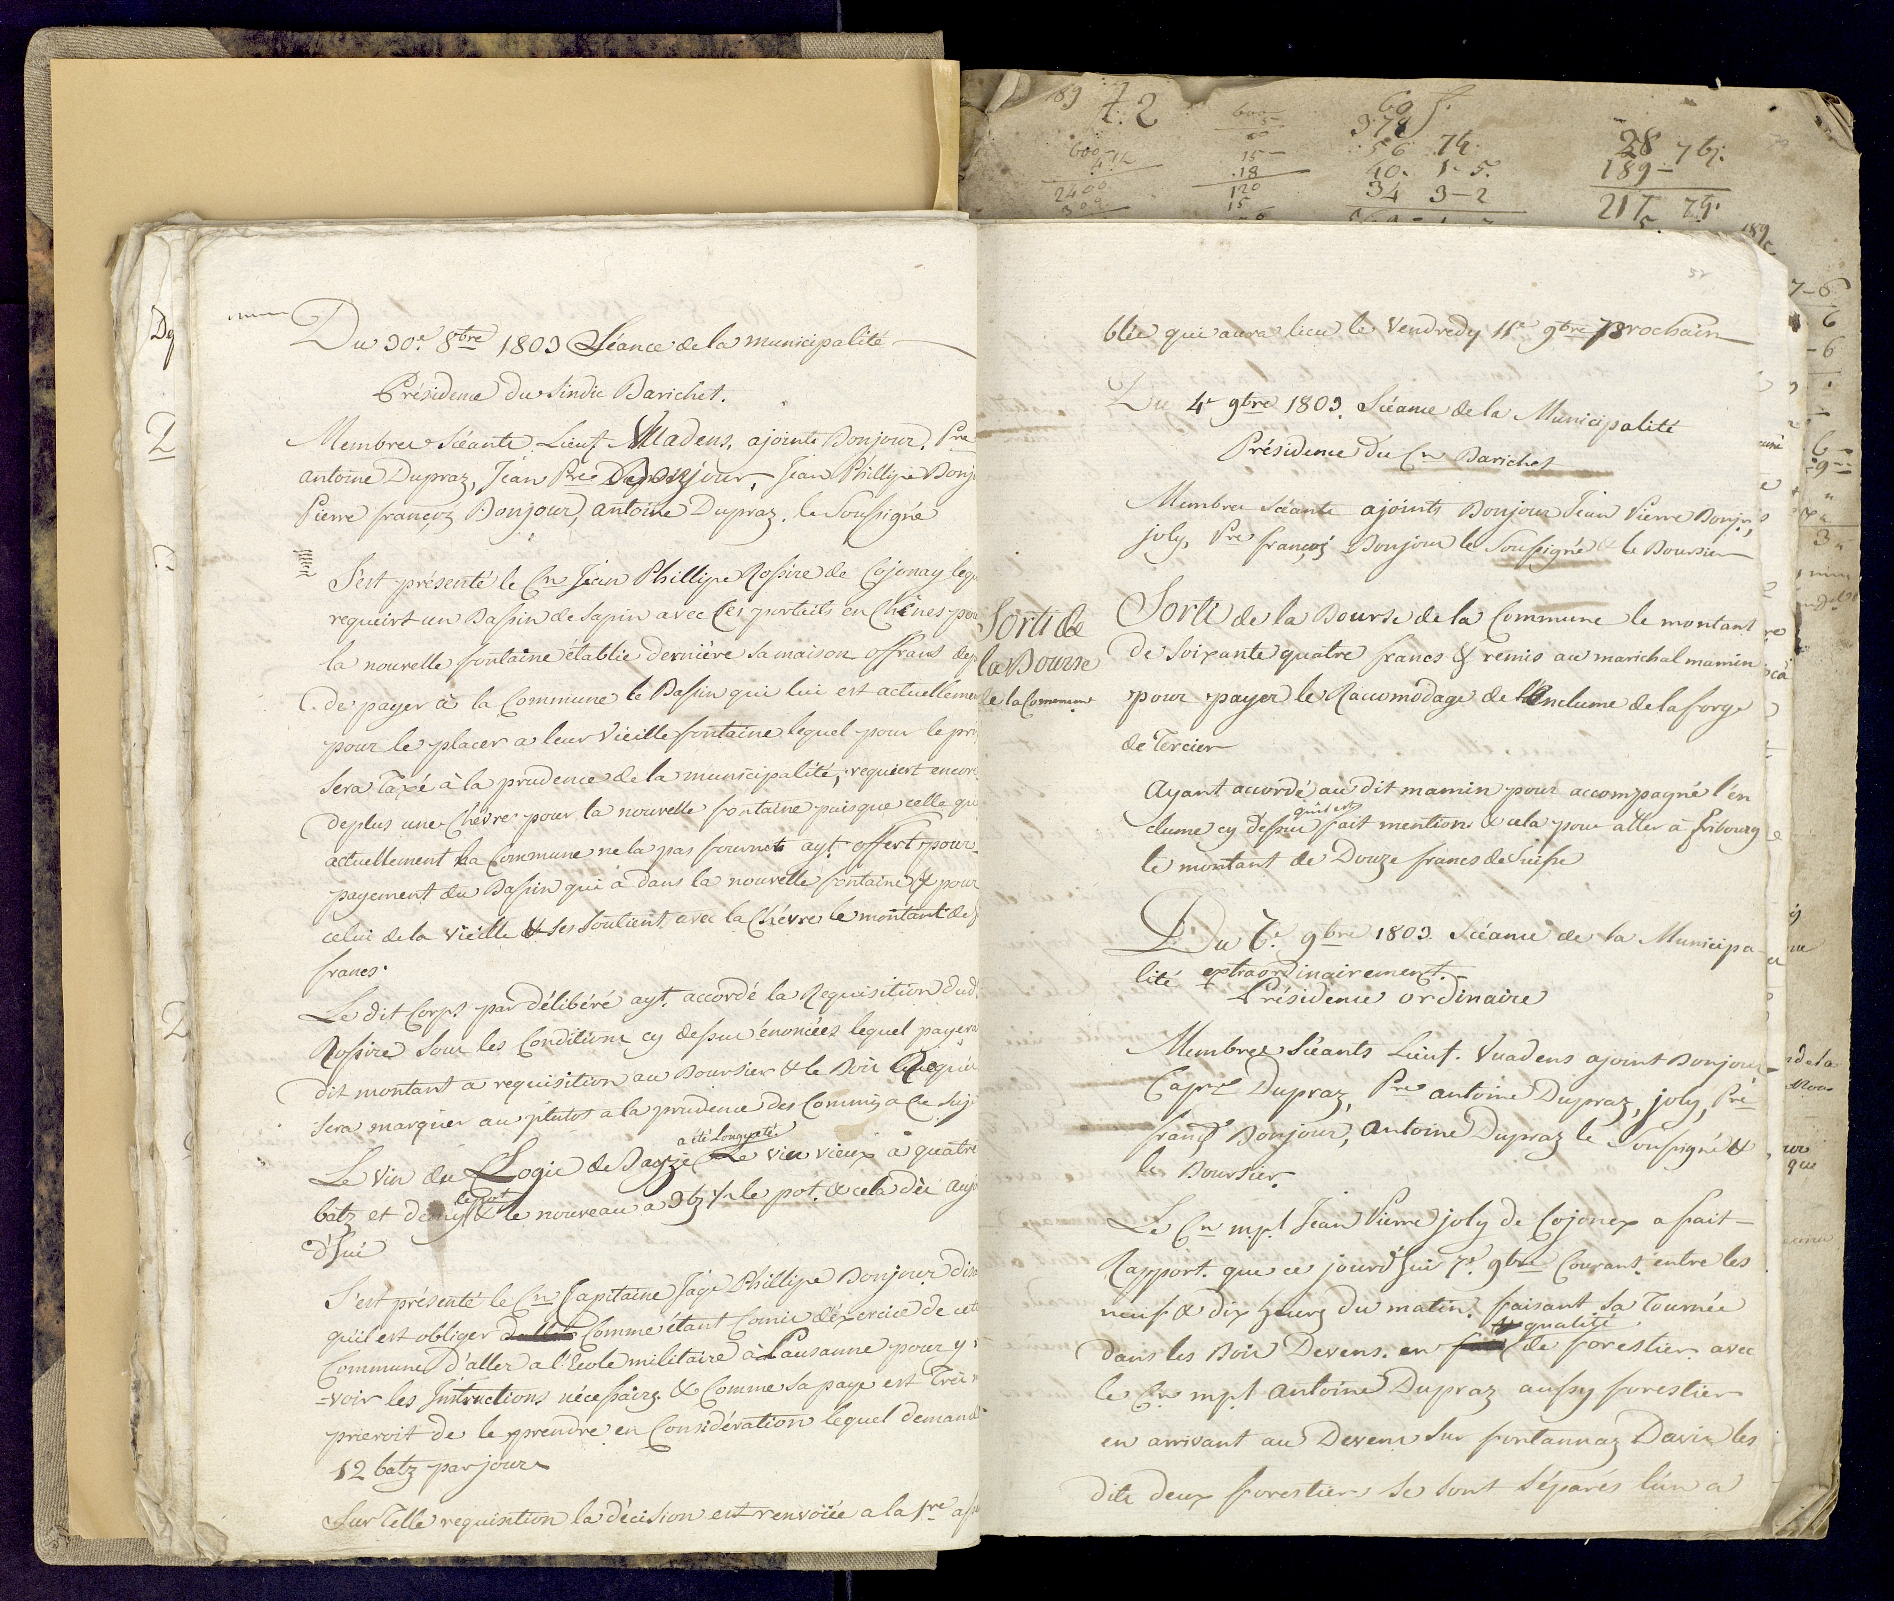 Du 30e. 8bre 1803 Séance de la municipalité
Présidence du Sindic Barichet.
Membres Séants Lieut. Vuadens, ajoints Bonjour, Pre
antoine Dupraz, Jean Pre Bonjour, Jean Phillipe Bonj
Pierre françoz Bonjour, antoine Dupraz. le Soussigné
S'est présenté le Cn Jean Phillipe Rossire de Cojonay leq
requeirt un Bassin de Sapin avec Ces porteits en Chênes pou
la nouvelle fontaine établie dernière sa maison offrant de
de payer à la Commune le Bassin qui lui est actuellemen
pour le placer a leur Vieille fontaine lequel pour le pri
Sera Taxé à la prudence de la municipalité, requiert encore
deplus une Chêvre pour la nouvelle fontaine puisque celle qu
actuellement la Commune ne la pas fournit ayt. offert pour
payement du Bassin qui à dans la nouvelle fontaine & pour
celui de la Vieille & ses Soutient avec la Chêvre le montant de
francs.
Le dit Corps par délibéré ayt. accordé la Requisition dud.
Rossire Sous les Conditions cy dessus énoncées lequel payera
dit montant a requisition au Boursier & le Bois Requi
Sera marquer au plutot a la prudence des Commis a Ce Suj
a été Longueté
Le Vin du Logis de Dagze Le vin vieux à quatre
le pot
batz et demy & le nouveau a 3bz ½ le pot. & cela dès auj
d'hui
S'est présenté le Cn Capitaine Jaqe Phillipe Bonjour dis
qu'il est obliger Comme étant Comis d'éxercice de cet
Commune D'aller a l'Ecole militaire à Lausanne pour y
-voir les Instructions nécessaires & Comme sa paye est Très
prieroit de le prendre en Considération lequel demand
12 batz par jour
Sur Telle requisition la décision est renvoiée a la 1re ass
52
blée qui aura lieu le Vendredy 11e 9bre prochain
Du 4e 9bre 1803. Séance de la Municipalité
Présidence du Cn Barichet
Membres Séants ajoints Bonjour Jean Pierre Bonjr,
joly, Pre françoi Bonjour le Soussigné & le Boursier
Sorti de
la Bourse
de la Commune
Sorti de la Bourse de la Commune le montant
de Soixante quatre francs & remis au marichal mamin
pour payer le Raccomodage de l'Enclume de la forge
de Tercier
Ayant accordé au dit mamin pour accompagné l'en
qu'il est
clume cy dessus fait mention & cela pour aller à fribourg
le montant de Douze francs de Suisse
Du 7e. 9bre 1803. Séance de la Municipa
lité extraordinairement.
Présidence ordinaire
Membres Séants Lieut. Vuadens ajoint Bonjour
Capne Dupraz, Pre antoine Dupraz, joly, Pre
franç Bonjour, Antoine Dupraz le Soussigné &
le Boursier.
Le Cn mpl Jean Pierre joly de Cojonex a fait
Rapport. que ce jourd'hui 7e. 9bre Courant entre les
neuf & dix heures du matin. faisant Sa Tournée
qualité
dans les Bois Devens. en de forestier avec
le Cn mpl antoine Dupraz aussy forestier
en arrivant au Devens Sur fontannaz David les
dits deux forestiers Se Sont Séparés l'un a